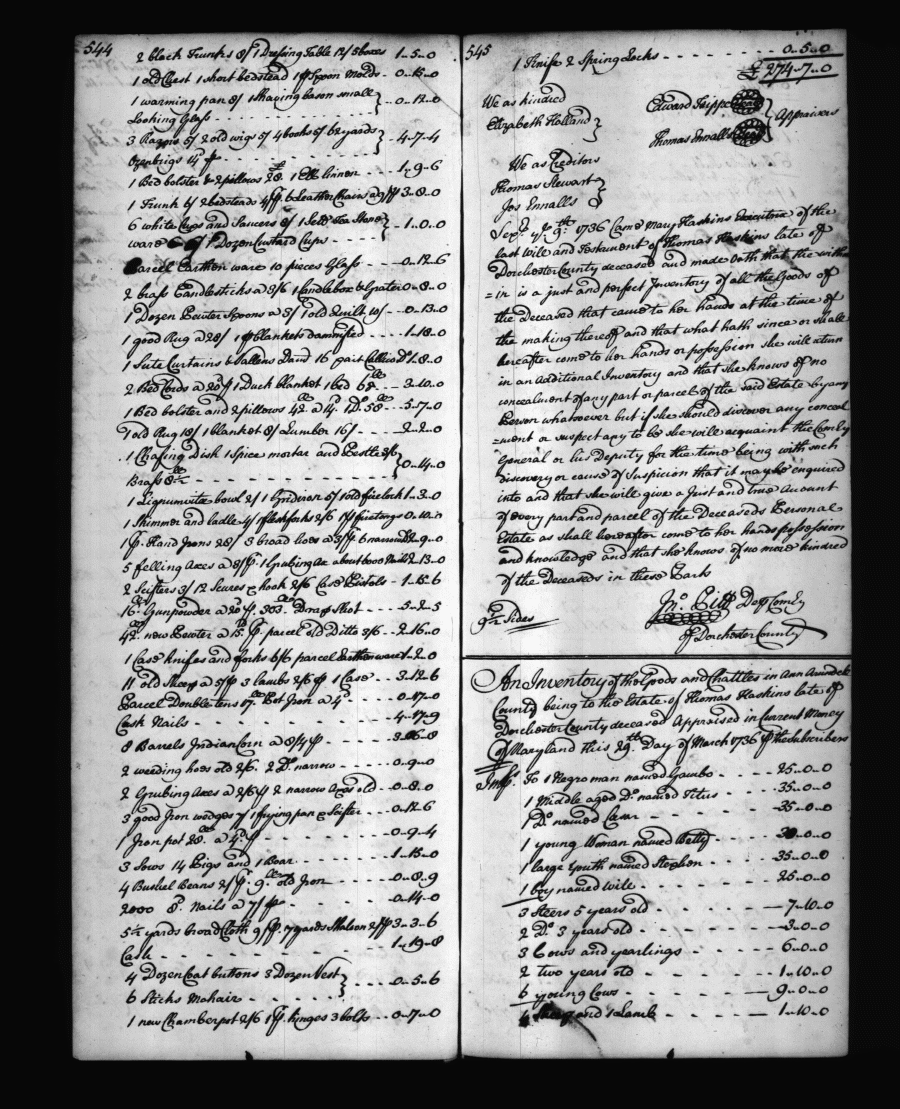 544
2 black Trunks 8/ 1 Dressing Table 12/ 5 boxes 1..5..0
1 old Chest 1 short bedstead 1 pr Spoon Molds - 0..15..0
1 warming pan 8/ 1 Shaving bason small
Looking Glass - - - 0..12..0
3 Razors 5/ 2 old wigs 5/ 4 books 5/ 62 yards
Ozenbrigs 14d p - - - 4..7..4
1 Bed bolster & 2 pillows 28 1 Ell linen - - 1..9..6
1 Trunk 4/ 2 bedsteads 4/p 6 Leather Chairs a 9/p 3..8..0
6 white Cups and Saucers 8/ 1 Sett Tea Stone
ware 1 Dozen Custard Cups - - - 1..0..0
Parcel Earthen ware 10 pieces Glass - - - 0..12..6
2 brass Candlesticks a 3/6 1 Candlebox & Grater 0..8..0
1 Dozen Pewter Spoons a 3/ 1 old Quilt 10/ - - 0..13..0
1 good Rug a 28/ 1 p blankets dammified - - - 1..18..0
1 Sute Curtains & Vallens Damd 16 part Callico Do 1..8..0
2 Bed Cords a 20d p 1 Duck blanket 1 bed 68lb - - 3..10..0
1 Bed bolster and 2 pillows 42lb a 14d 1 Do 58lb - - 5..7..0
1 old Rug 18/ 1 blanket 8/ Lumber 16/ - - - 2..2..0
1 Chafing Dish 1 Spice mortar and Pestle
Brass 8lb 1/2 - - - 0..14..0
1 Lignumvitæ bowl 2/ 1 Gridiron 5/ 1 old firelock 1..3..0
1 Skimmer and ladle 4/ 1 fleshfork 2/6 1 p firetongs 0..10..0
1 p. Hand Irons 28/ 3 broad hoes a 3/p 6 narrow Do 2..9..0
5 felling Axes a 8/p. 1 Grubing Axe about 6000 Nails 2..13..0
2 Scifters 3/ 12 Scures & hook 2/6 Case Pistols - 1..15..6
16lb Gunpowder a 20d p. 303lb Drop Shot - - - 5..2..5
42lb new Pewter a 15d p. parcel old Ditto 3/6 - - 2..16..0
1 Case knifes and forks 6/6 parcel Earthenware 1..2..0
11 old Sheep a 5/p 3 lambs 2/6 p 1 Case - - 3..12..6
Parcel Double tens 17lb Pot Iron a 4d - - - 0..17..0
Cask Nails - - - 4..17..9
8 Barrels Indian Corn a 8/4 p - - - 3..6..8
2 weeding hoes old 2/6. 2 Do narrow - - - 0..9..0
2 Grubing Axes a 2/6 p 2 narrow Axes old - - 0..8..0
3 good Iron wedges 7/ 1 frying pan & Scifter - - 0..12..6
1 Iron pot 28lb a 4d p - - - 0..9..4
3 Sows 14 Pigs and 1 Boar - - - 1..15..0
4 Bushel Beans 2/p. 9lb old Iron - - - 0..8..9
2000 8d. Nails a 7/p - - - 0..14..0
5 1/2 yards broad Cloth 9/p. 7 yards Shaloon 2/p 3..3..6
Cash - - - 1..19..8
4 Dozen Coat buttons 3 Dozen Vest
6 Sticks Mohair - - - 0..5..6
1 new Chamberpot 2/6 1 p. hinges 3 bolts - - 0..7..0
545
1 Knife 2 Spring locks - - - 0..5..0
£ 274..7..0
We as kindred
Elizabeth Holland
Edward Tripp
Thomas Ennalls
Appraisers
We as Creditors
Thomas Stewart
Jos Ennalls
Sepr. ye 9th. 1736 Came Mary Haskins Executrix of the
last will and Testament of Thomas Haskins late of
Dorchester County deceased and made Oath that the with
=in is a just and perfect Inventory of all the Goods of
the Deceased that came to her hands at the time of
the making thereof and that what hath since or shall
hereafter come to her hands or possession she will return
in an Additional Inventory and that she knows of no
concealment of any part or parcel of the said Estate by any
Person whatsoever but if she should discover any conceal
=ment or suspect any to be she will acquaint the Comsy
General or his Deputy for the time being with such
discovery or cause of Suspicion that it may be enquired
into and that she will give a Just and true Account
of every part and parcel of the Deceaseds Personal
Estate as shall hereafter come to her hands possession
and knowledge and that she knows of no more kindred
of the Deceaseds in these Parts
Jno. Pitt Dep Comsy
of Dorchester County
9 1/2 Sides
An Inventory of the Goods and Chattles in Ann Arundel
County being to the Estate of Thomas Haskins late of
Dorchester County deceased Appraised in Current Money
of Maryland this 29th. Day of March 1736 p the subscribers
Imps. To 1 Negro man named Gambo - - - 25..0..0
1 Middle aged Do. named Titus - - - 35..0..0
1 Do. named Cesar - - - 35..0..0
1 young Woman named Betty - - - 30..0..0
1 large Youth named Stephen - - - 35..0..0
1 boy named Wile - - - 25..0..0
3 Steers 5 years old - - - 7..10..0
2 Do. 3 years old - - - 3..0..0
3 Cows and yearlings - - - 6..0..0
2 two years old - - - 1..10..0
6 young Cows - - - 9..0..0
4 Sheep and 1 Lamb - - - 1..10..0